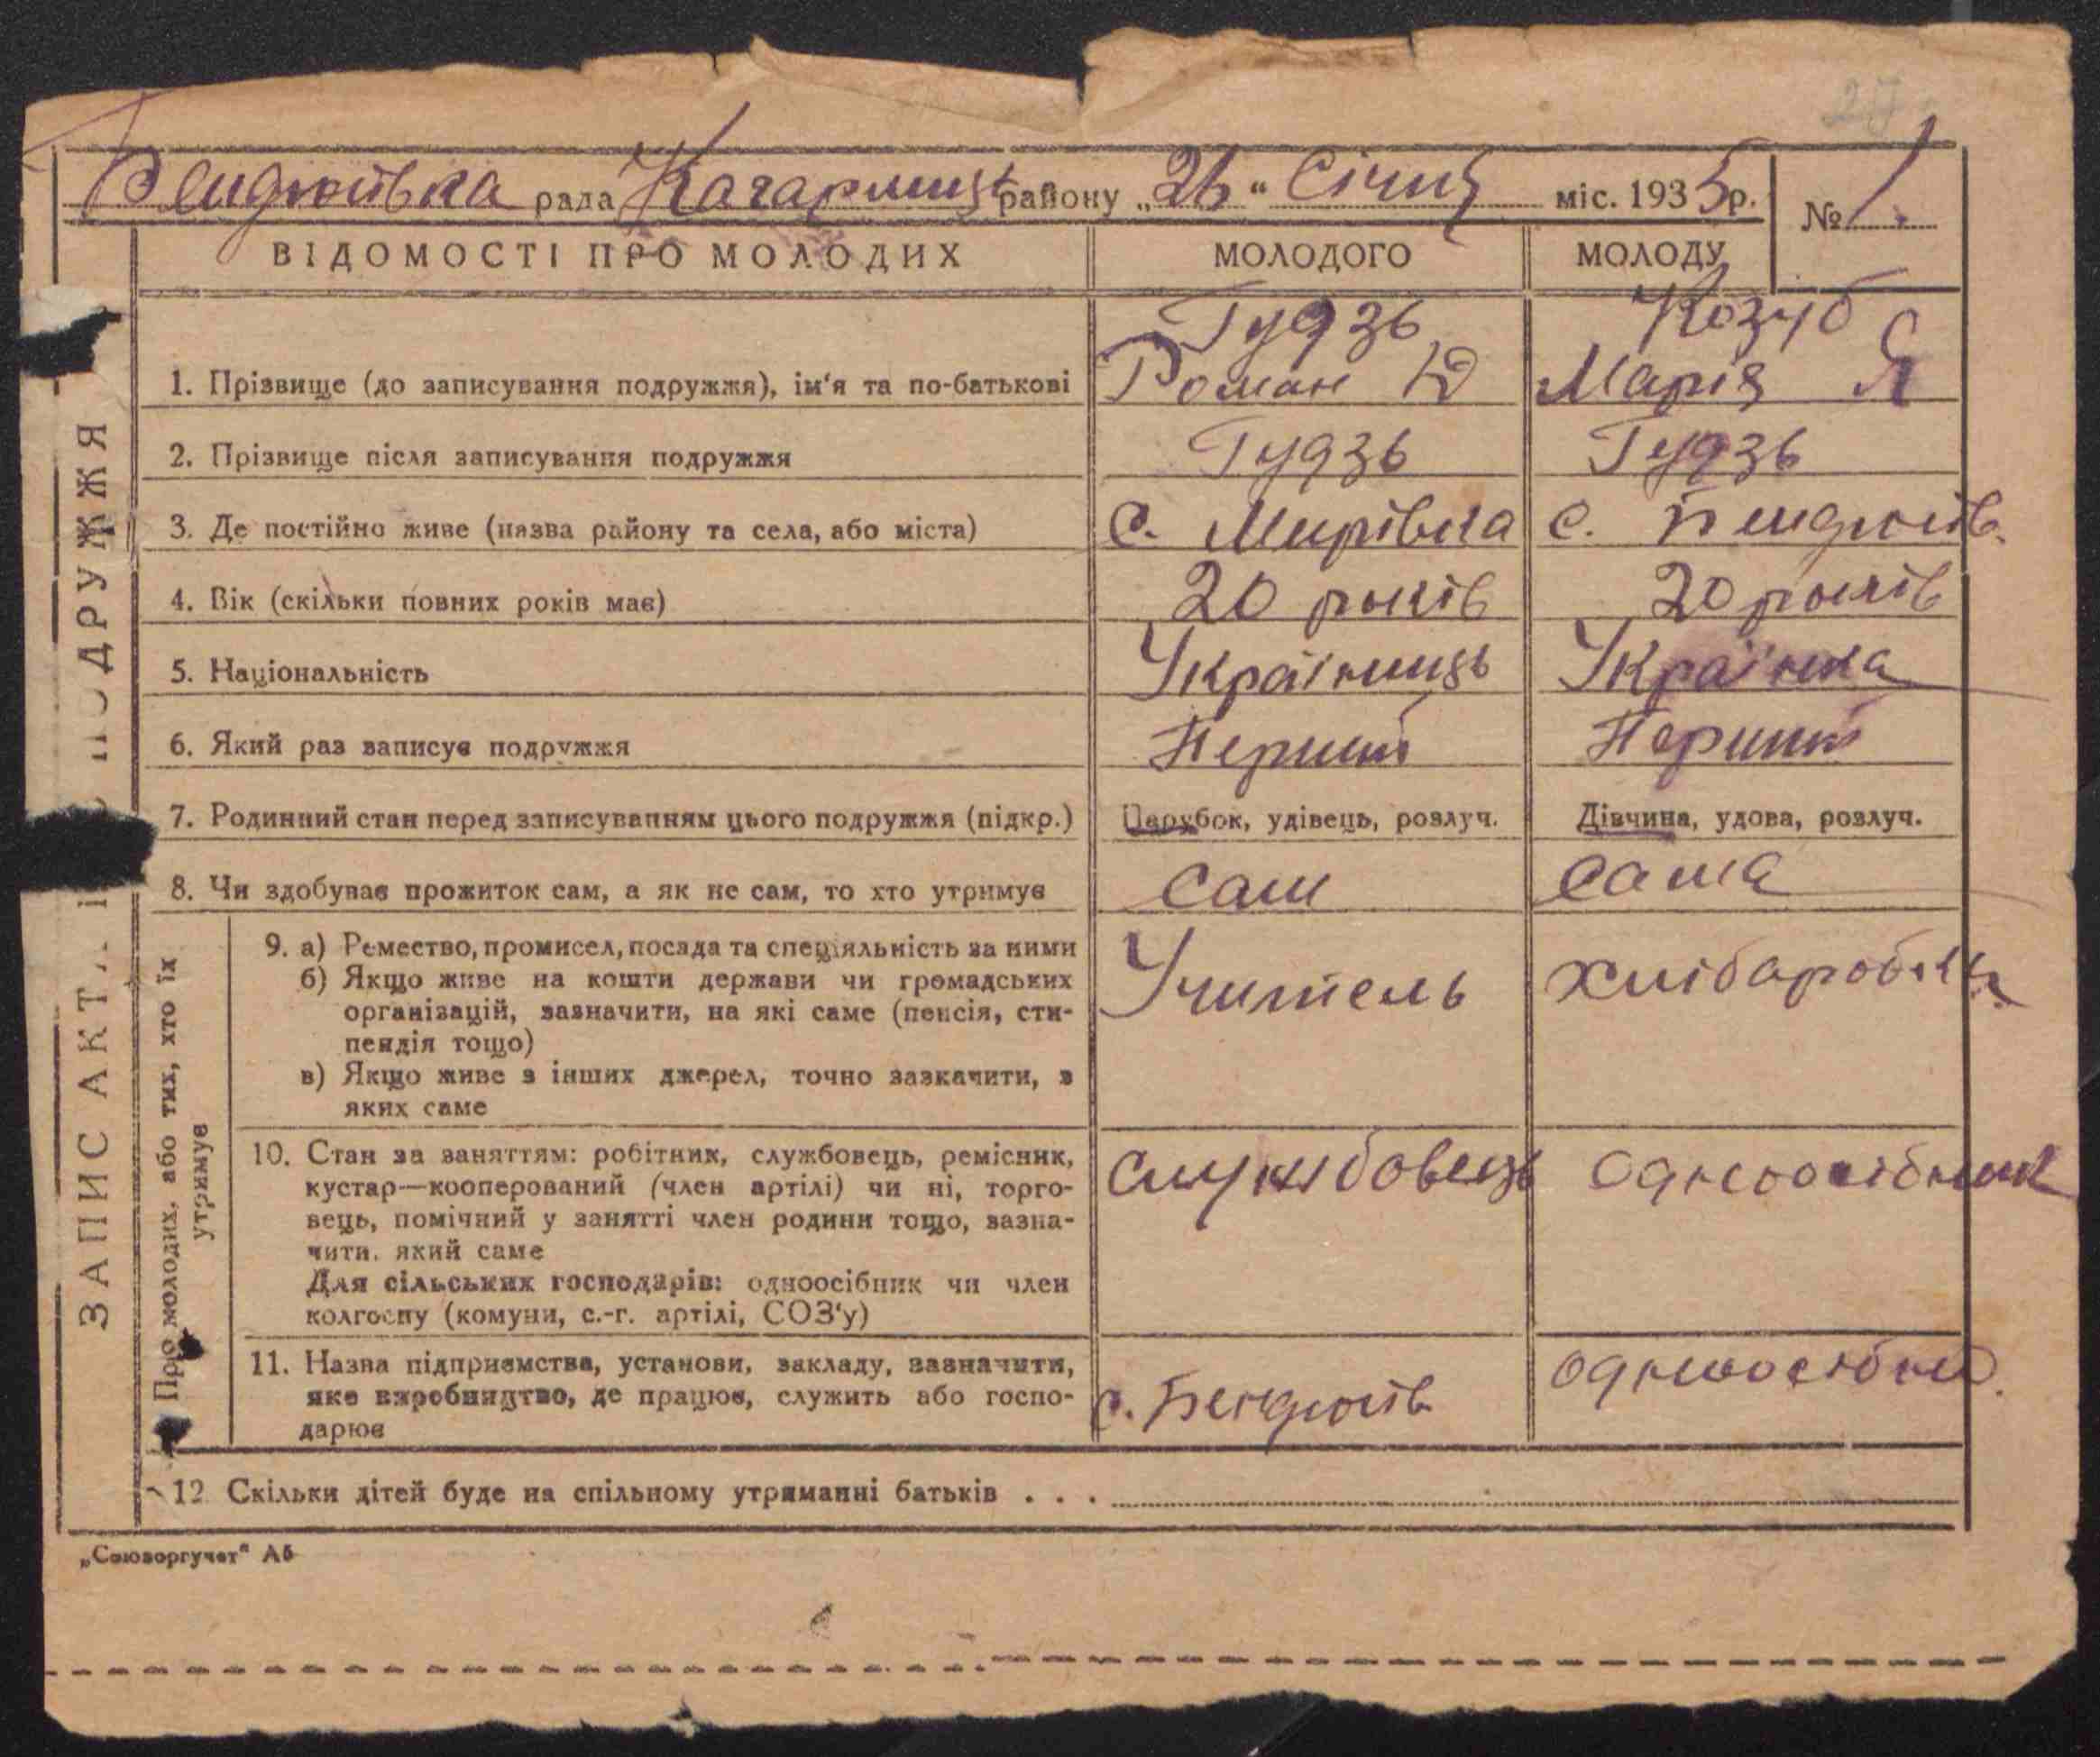 20
Бенджиївка рада Кагарлицьк району „26“ Січня міс. 1935р. №1.
ВІДОМОСТІ ПРО МОЛОДИХ МОЛОДОГО МОЛОДУ
Гудзь Козуб
1. Прізвище (до записування подружжя), ім‘я та по-батькові Роман Ю Марія Я
2. Прізвище після записування подружжя Гудзь Гудзь
3. Де постійно живе (назва району та села, або міста) с. Мирівка с.
4. Вік (скільки повних років має) 20 років 20 років
5. Національність Українець Українка
6. Який раз записує подружжя Перший Перший
7. Родинний стан перед записуванням цього подружжя (підкр.) Парубок, удівець, розлуч. Дівчина, удова, розлуч.
8. Чи здобуває прожиток сам, а як не сам, то хто утримує сам сама
9. а) Ремество, промисел, посада та спеціяльність за ними Учитель хлібаробка
б) Якщо живе на кошти держави чи громадських
організацій, зазначити, на які саме (пенсія, сти-
пендія тощо)
в) Якщо живе з інших джерел, точно зазначити, з
яких саме
10. Стан за заняттям: робітник, службовець, ремісник, службовець одноосібник
кустар—кооперований (член артілі) чи ні, торго-
вець, помічний у занятті член родини тощо, зазна-
чити, який саме
Для сільських господарів: одноосібник чи член
колгоспу (комуни, с.-г. артілі, СОЗ‘у)
11. Назва підприємства, установи, закладу, зазначити,
яке виробництво, де працює, служить або госпо-
дарює с.
12 Скільки дітей буде на спільному утриманні батьків . . .
ЗАПИС АКТА ПОДРУЖЖЯ
Про молодих, або тих, хто їх
утримує
„Союзоргучет“ Аб